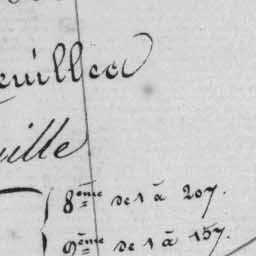 euillea
uille
8ème de 1 à 207.
9ème de 1 à 157.